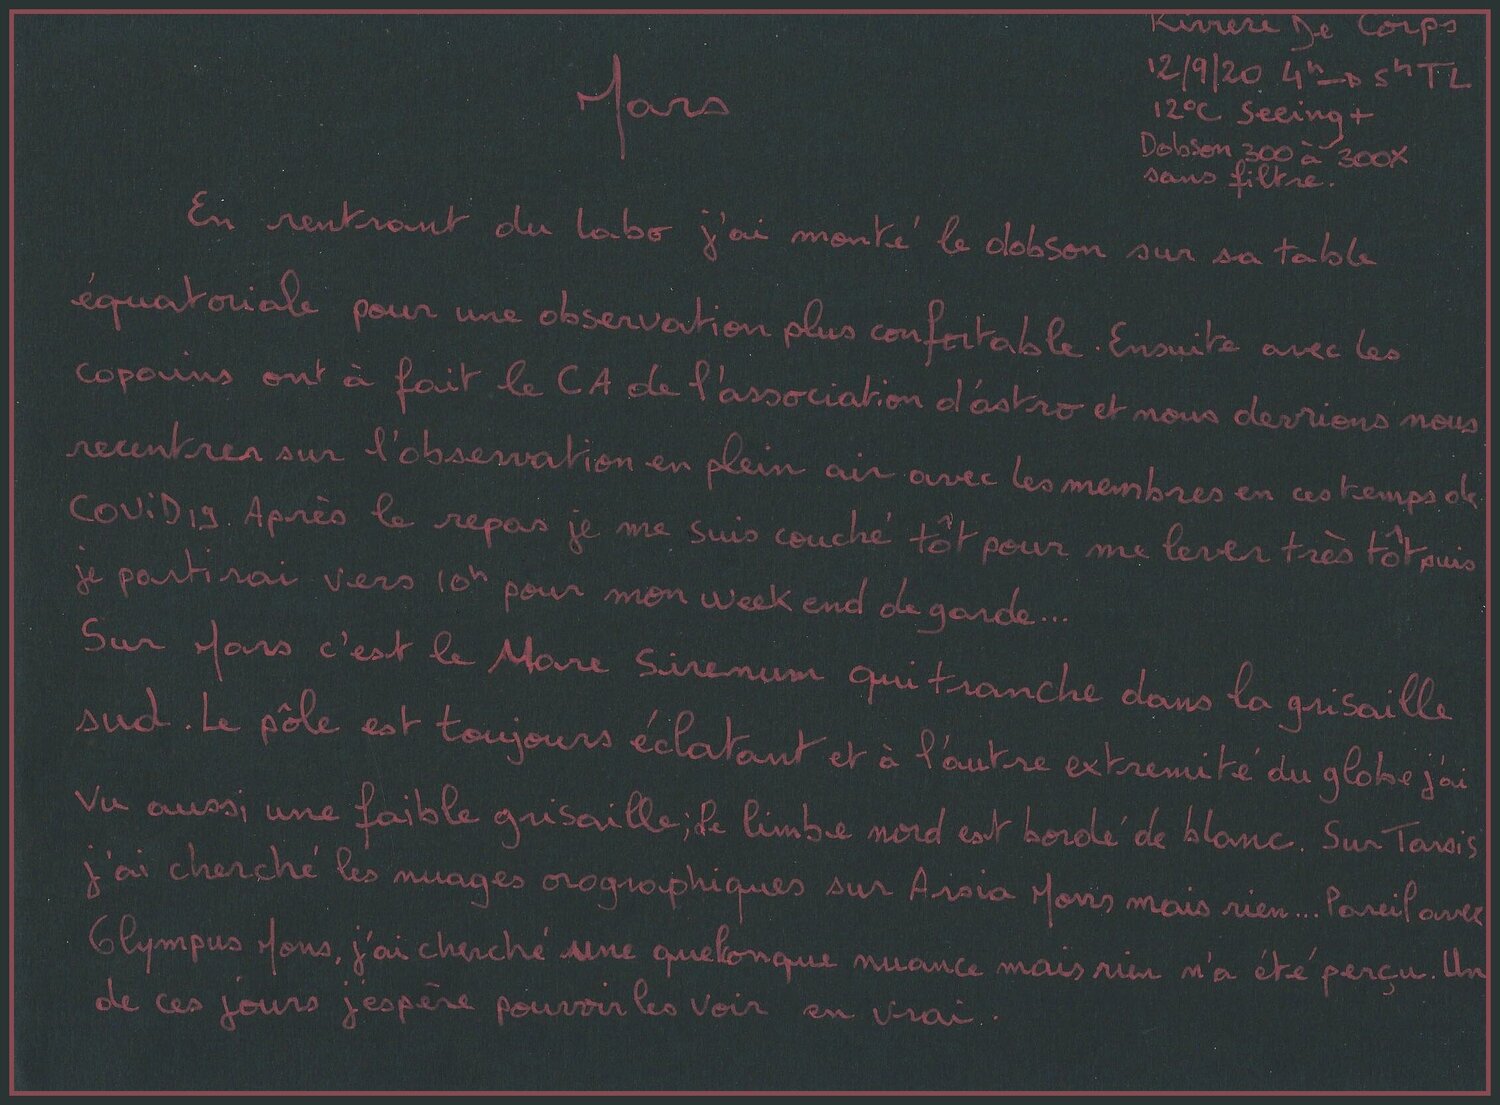 Rivière De Corps
12/9/20 4h → 5h TL
12°C Seeing+
Dobson 300 à 300X
sans filtre.
Mars
En rentrant du labo j'ai monté le dobson sur sa table
équatoriale pour une observation plus confortable. Ensuite avec les
copains ont à fait le CA de l'association d'astro et nous devrions nous
recentrer sur l'observation en plein air avec les membres en ces temps de
COViD19. Après le repas je me suis couché tôt pour me lever très tôt puis
je partirai vers 10h pour mon week end de garde...
Sur Mars c'est le Mare Sirenum qui tranche dans la grisaille
sud. Le pôle est toujours éclatant et à l'autre extremité du globe j'ai
vu aussi une faible grisaille; le limbe nord est bordé de blanc. Sur Tarsis
j'ai cherché les nuages orographiques sur Arsia Mons mais rien... Pareil avec
Olympus Mons, j'ai cherché une quelconque nuance mais rien n'a été perçu. Un
de ces jours j'espère pouvoir les voir en vrai.